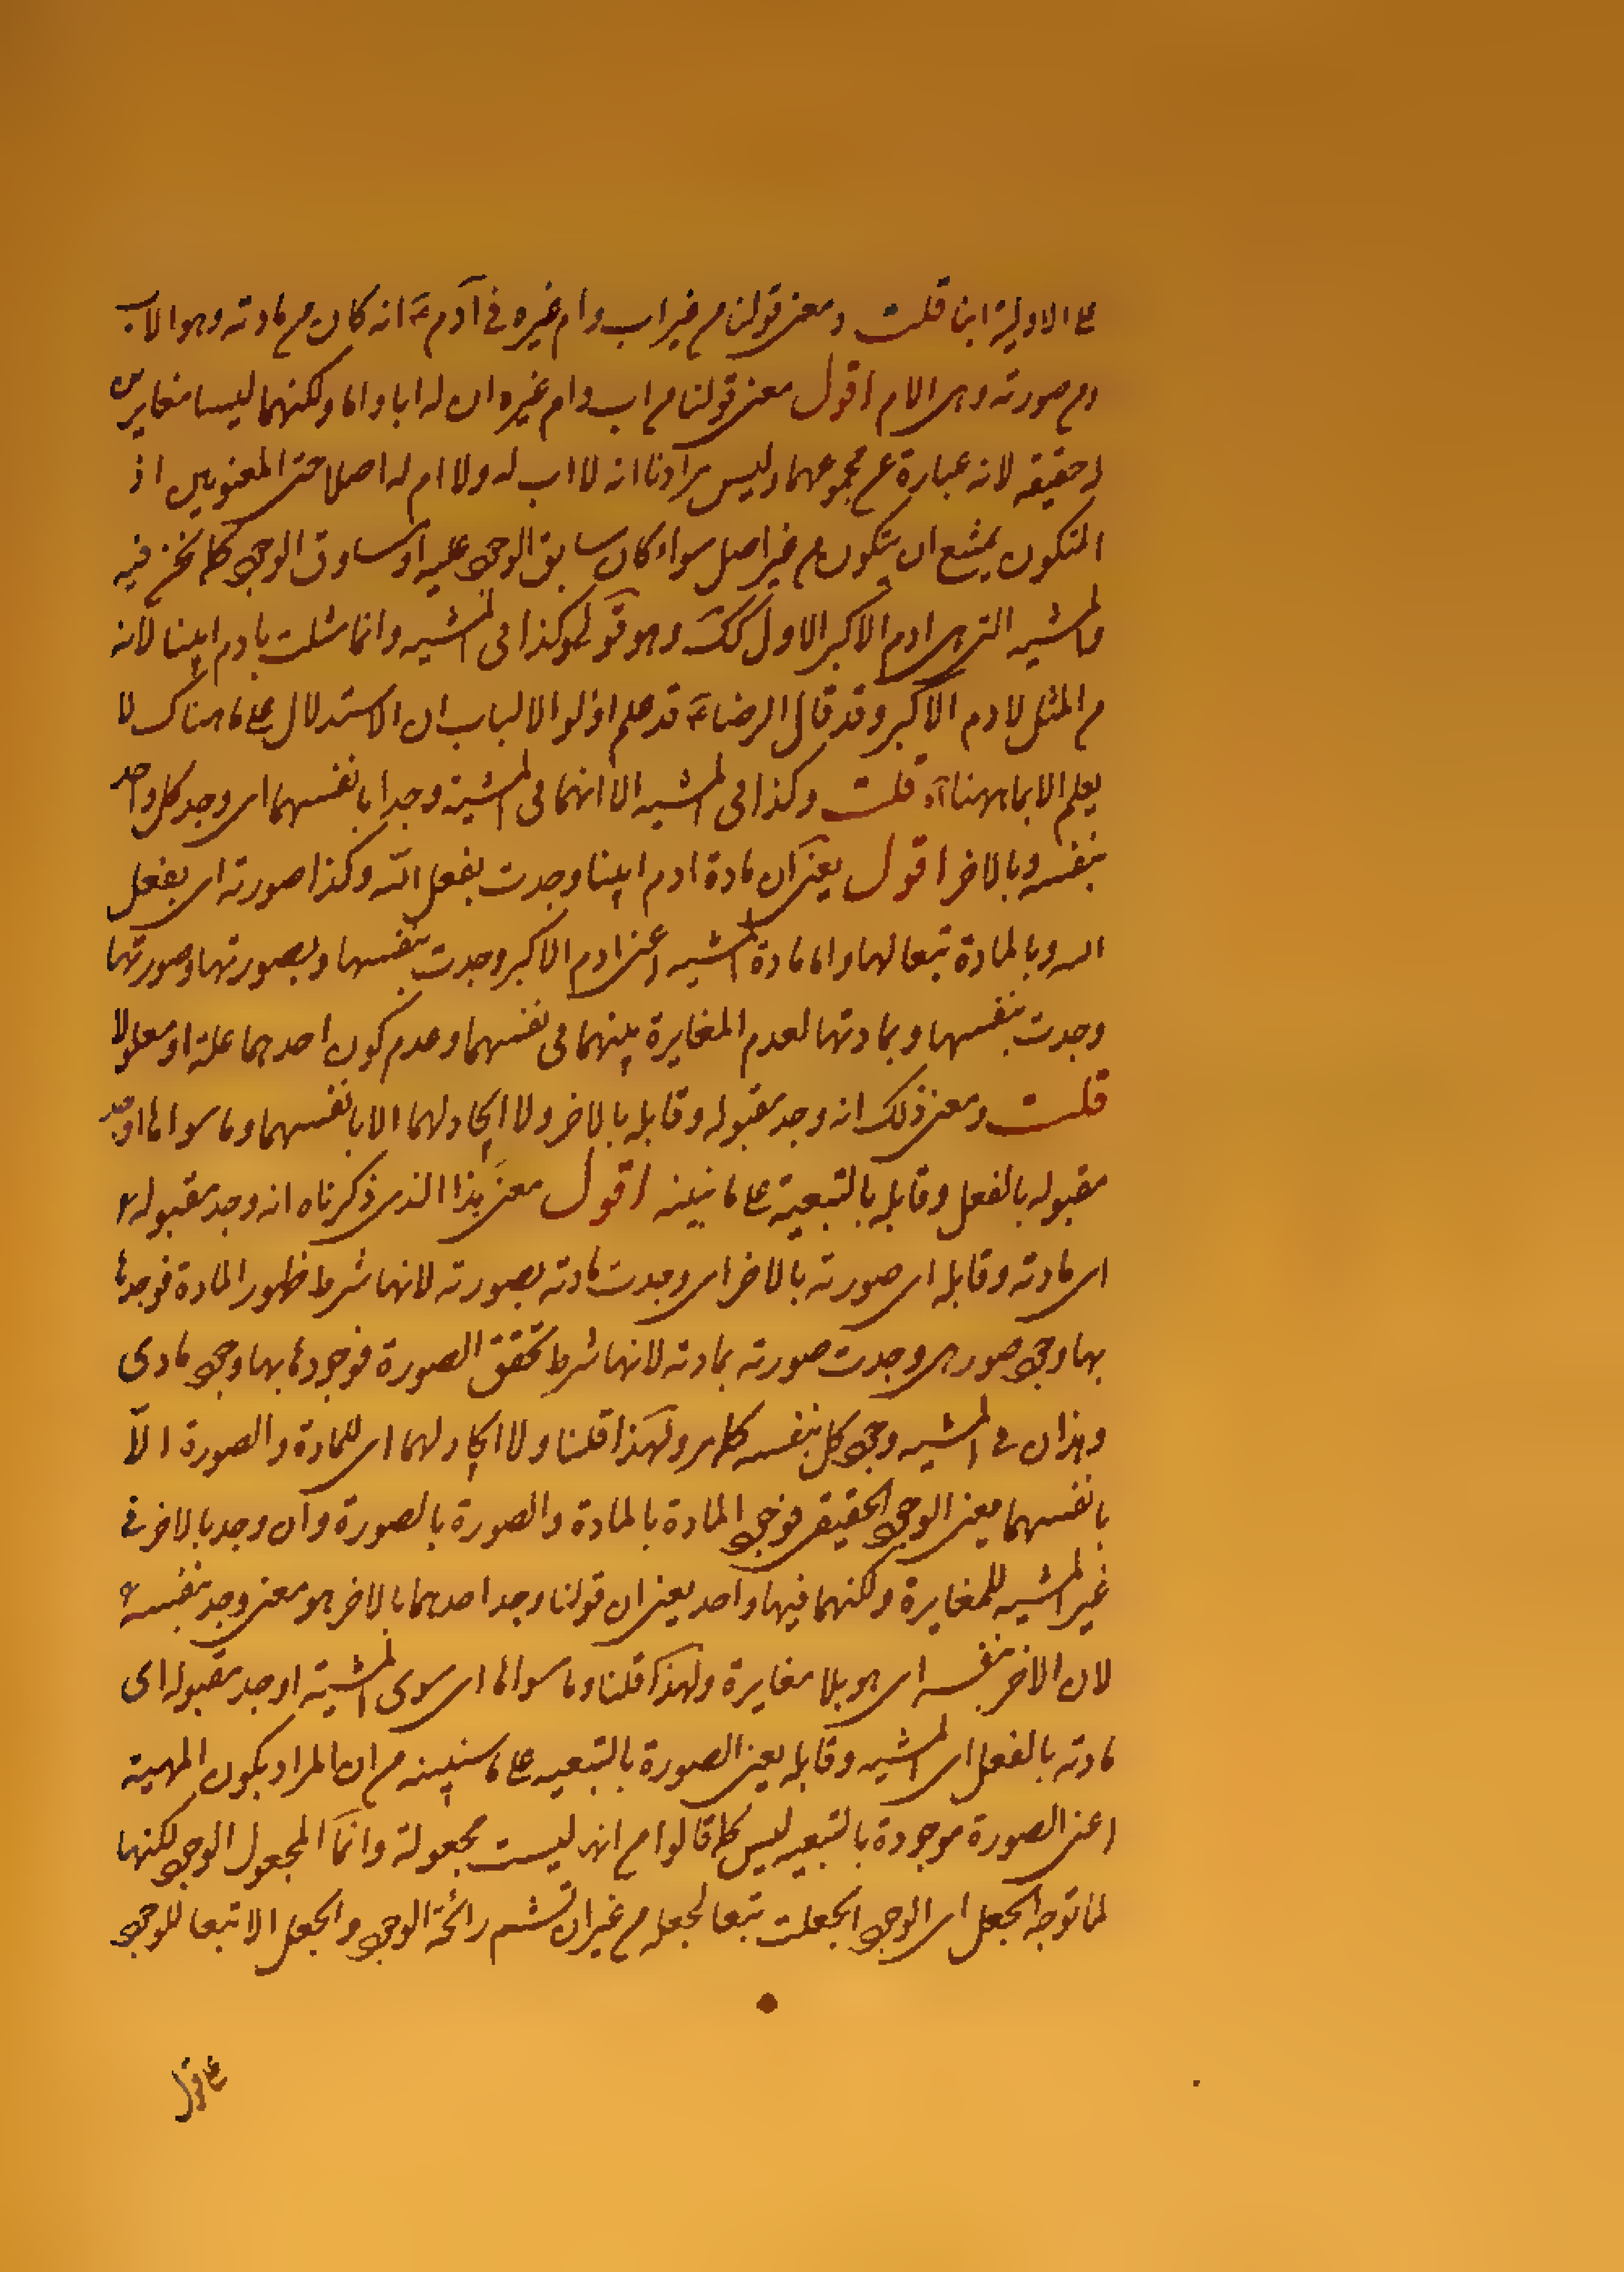 على الاولية ابنا قلت ومعنى قولنا من غير اب وام غيره فى آدم ع انه كان من مادته وهو الاب
ومن صورته وهى الام اقول معنى قولنا من اب وام غيره ان له ابا واما ولكنهما ليسا مغايرين
له حقيقه لانه عبارة عن مجموعهما وليس مرادنا انه لا اب له ولا ام له اصلا حتى المعنويين اذ
المتكون يمتنع ان يتكون من غير اصل سواء كان سابق الوجود عليه او مساوق الوجود كما نحن فيه
والمشيه التى هى ادم الاكبر الاول كك وهو قولى وكذا فى المشيه وانما مثلت بادم ابينا لانه
من المثل لادم الاكبر وقد قال الرضا ع قد علم اولو الالباب ان الاستدلال على ما هناك لا
يعلم الا بما ههنا آه قلت وكذا فى المشيه الا انهما فى المشية وجدا بانفسهما اى وجد كل واحد
بنفسه وبالاخر اقول يعنى ان مادة ادم ابينا وجدت بفعل الله وكذا صورته اى بفعل
الله وبالمادة تبعا لها واما مادة المشيه اعنى ادم الاكبر وجدت بنفسها وبصورتها وصورتها
وجدت بنفسها وبمادتها لعدم المغايرة بينهما فى نفسهما وعدم كون احدهما علة او معلولا
قلت ومعنى ذلك انه وجد مقبوله وقابله بالاخر ولا ايجاد لهما الا بانفسهما وما سواها اوجد
مقبوله بالفعل وقابله بالتبعية على ما نبينه اقول معنى هذا الذى ذكرناه انه وجد مقبوله
اى مادته وقابله اى صورته بالاخر اى وجدت مادته بصورته لانها شرط ظهور المادة فوجدها
بها وجود صورى وجدت صورته بمادته لانها شرط تحقق الصورة فوجودها بها وجود مادى
وهذان فى المشيه وجود كل بنفسه كما مر ولهذا قلنا ولا ايجاد لهما اى للمادة والصورة الا
بانفسهما يعنى الوجود الحقيقى فوجود المادة بالمادة والصورة بالصورة وان وجد بالاخر فى
غير المشيه للمغايرة ولكنهما فيها واحد يعنى ان قولنا وجد احدهما بالاخر هو معنى وجد بنفسه
لان الاخر بنفسه اى هو بلا مغايرة ولهذا قلنا وما سواها اى سوى المشية اوجد مقبوله اى
مادته بالفعل اى المشيه وقابله يعنى الصورة بالتبعيه على ما سنبينه من ان المراد بكون المهية
اعنى الصورة موجودة بالتبعيه ليس كما قالوا من انها ليست مجعولة وانما المجعول الوجود لكنها
لما توجه الجعل اى الوجود انجعلت تبعا لجعله من غير ان تشم رائحة الوجود والجعل الا تبعا للوجود